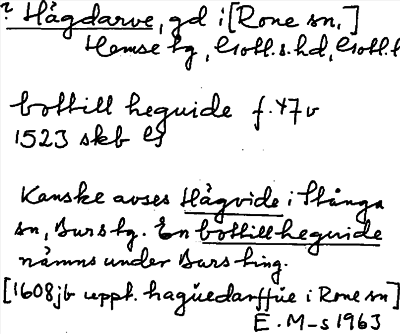 ? Hägdarve, gd i [Rone sn,]
Hemse tg, Gotl. s. hd, Gotl. l
bottill heguide f. 47v
1523 skb G
Kanske avses Hägvide i Stånga
sn, Burs tg. En bottill heguide
nämns under Burs ting.
[1608 jb uppt. hagüedarffue i Rone sn]
E. M-s 1963